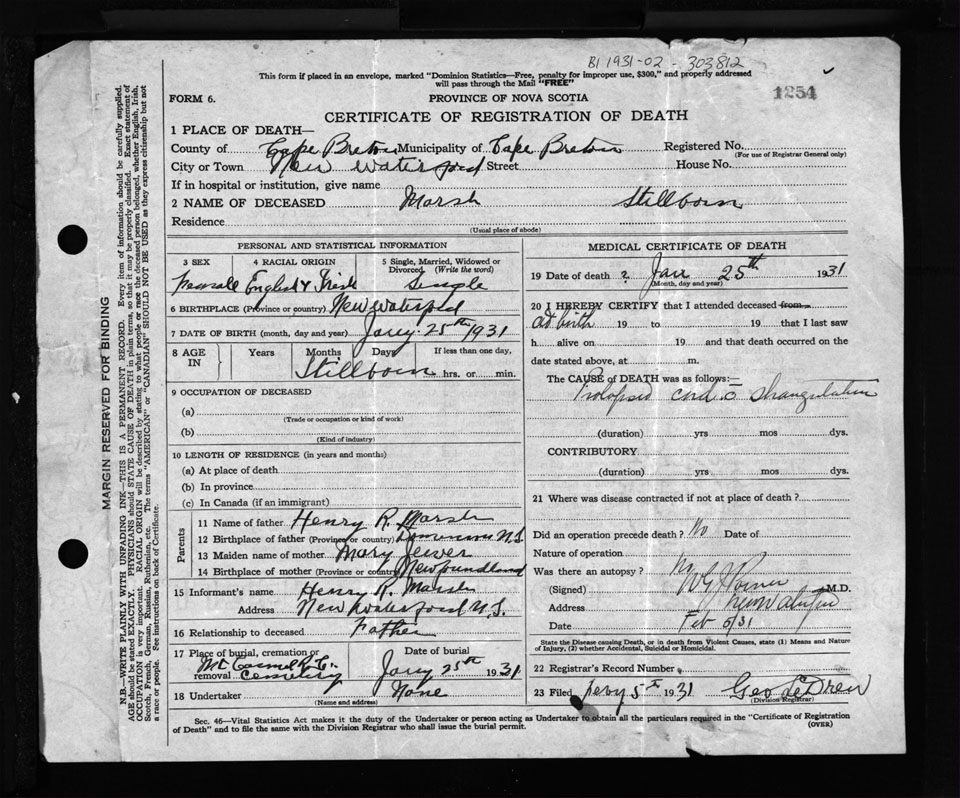 BI 1931-02 - 303812
This form if placed in an envelope, marked "Dominion Statistics—Free, penalty for improper use, $300," and properly addressed
will pass through the Mail "FREE"
1254
FORM 6.
PROVINCE OF NOVA SCOTIA
CERTIFICATE OF REGISTRATION OF DEATH
1 PLACE OF DEATH—
County of Cape Breton Municipality of Cape Breton Registered No.
(For use of Registrar General only)
City or Town New Waterford Street House No.
If in hospital or institution, give name
2 NAME OF DECEASED Marsh Stillborn
Residence
(Usual place of abode)
PERSONAL AND STATISTICAL INFORMATION
3 SEX 4 RACIAL ORIGIN 5 Single, Married, Widowed or Divorced (Write the word)
English & Irish Single
6 BIRTHPLACE (Province or country) New Waterford
7 DATE OF BIRTH (month, day and year) Jany 25th 1931
8 AGE IN Years Months Days If less than one day,
Stillborn hrs. or min.
9 OCCUPATION OF DECEASED
(a)
(Trade or occupation or kind of work)
(b)
(Kind of industry)
10 LENGTH OF RESIDENCE (in years and months)
(a) At place of death
(b) In province
(c) In Canada (if an immigrant)
Parents
11 Name of father Henry R. Marsh
12 Birthplace of father (Province or country) Dominion N.S.
13 Maiden name of mother Mary
14 Birthplace of mother (Province or country) Newfoundland
15 Informant's name Henry R. Marsh
Address New Waterford N.S.
16 Relationship to deceased Father
17 Place of burial, cremation or removal Mt Carmel R.C. Cemetery
Date of burial Jany 25th 1931
18 Undertaker None
(Name and address)
MEDICAL CERTIFICATE OF DEATH
19 Date of death ? Jan 25th 1931
(Month, day and year)
20 I HEREBY CERTIFY that I attended deceased from
at birth 19 to 19 that I last saw
h alive on 19 and that death occurred on the
date stated above, at m.
The CAUSE of DEATH was as follows:—
Prolapsed cord c̄ strangulation
(duration) yrs mos dys.
CONTRIBUTORY
(duration) yrs mos dys.
21 Where was disease contracted if not at place of death?
Did an operation precede death? No Date of
Nature of operation
Was there an autopsy? No
(Signed) M.D.
Address New Waterford
Date Feb 5/31
State the Disease causing Death, or in death from Violent Causes, state (1) Means and Nature
of Injury, (2) whether Accidental, Suicidal or Homicidal.
22 Registrar's Record Number
23 Filed 5th 1931 Geo LeDrew
(Division Registrar)
Sec. 46—Vital Statistics Act makes it the duty of the Undertaker or person acting as Undertaker to obtain all the particulars required in the "Certificate of Registration
of Death" and to file the same with the Division Registrar who shall issue the burial permit.
(OVER)
MARGIN RESERVED FOR BINDING
N.B.—WRITE PLAINLY WITH UNFADING INK—THIS IS A PERMANENT RECORD. Every item of information should be carefully supplied.
AGE should be stated EXACTLY. PHYSICIANS should STATE CAUSE OF DEATH in plain terms, so that it may be properly classified. Exact statement of
OCCUPATION is very important. RACIAL ORIGIN will be described by stating to what people or race the deceased person belonged, whether English, Irish,
Scotch, French, German, Russian, Ruthenian, etc. The terms "AMERICAN" or "CANADIAN" SHOULD NOT BE USED as they express citizenship but not
a race or people. See instructions on back of Certificate.